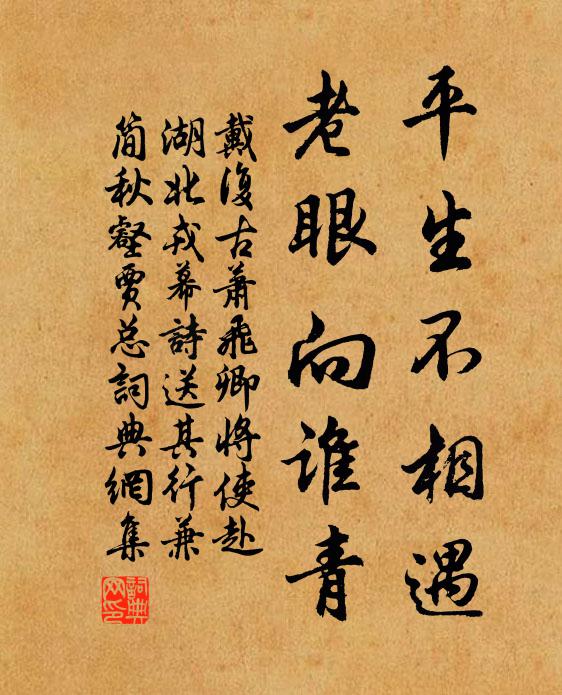 平生不相遇
老眼向谁青
戴復古蕭飛卿將使赴
湖北戎幕詩送其行兼
简秋壑賈总詞典網集
詞典
网印